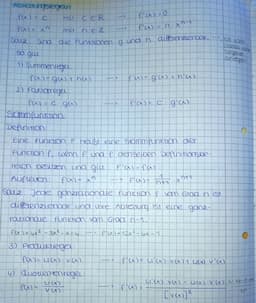 Ableitungsregeln
f(x) = c mit c ∈ R → f'(x) = 0
f(x) = x^n mit n ∈ R → f'(x) = n x^n-1
Satz Sind die Funktionen g und h differenzierbar
so gilt
1) Summenregel
f(x) = g(x) + h(x) → f'(x) = g'(x) + h'(x)
2) Faktorregel
f(x) = c g(x) → f'(x) = c g'(x)
Stammfunktion
Definition
Eine Funktion F heißt eine Stammfunktion der
Funktion f, wenn F und f denselben Definitionsbe-
reich besitzen und gilt F'(x) = f(x)
Aufleiten f(x) = x^n → F(x) = 1/n+1 x^n+1
Satz Jede ganzrationale Funktion f vom Grad n ist
differenzierbar und ihre Ableitung ist eine ganz-
rationale Funktion vom Grad n-1.
3) Produktregel
f(x) = u(x) v(x) → f'(x) = u'(x) v(x) + u(x) v'(x)
4) Quotientenregel
f(x) = u(x)/v(x) → f'(x) = u'(x) v(x) - u(x) v'(x)
[v(x)]²